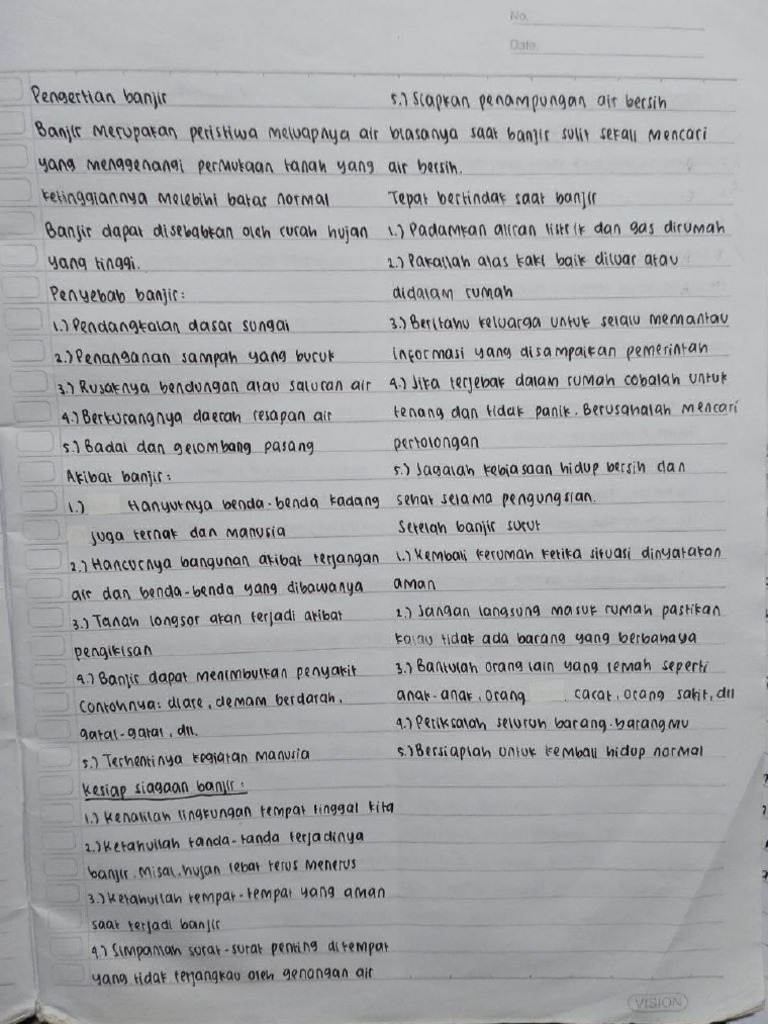 No.
Date.
Pengertian banjir
Banjir merupakan peristiwa meluapnya air
yang menggenangi permukaan tanah yang
ketinggiannya melebihi batas normal
Banjir dapat disebabkan oleh curah hujan
yang tinggi.
Penyebab banjir:
1.) Pendangkalan dasar sungai
2.) Penanganan sampah yang buruk
3.) Rusaknya bendungan atau saluran air
4.) Berkurangnya daerah resapan air
5.) Badai dan gelombang pasang
Akibat banjir:
1.) Hanyutnya benda-benda kadang
juga ternak dan manusia
2.) Hancurnya bangunan akibat terjangan
air dan benda-benda yang dibawanya
3.) Tanah longsor akan terjadi akibat
pengikisan
4.) Banjir dapat menimbulkan penyakit
Contohnya: diare, demam berdarah,
gatal-gatal, dll.
5.) Terhentinya kegiatan manusia
Kesiap siagaan banjir:
1.) Kenalilah lingkungan tempat tinggal kita
2.) Ketahuilah tanda-tanda terjadinya
banjir. Misal, hujan lebat terus menerus
3.) Ketahuilah tempat-tempat yang aman
saat terjadi banjir
4.) Simpamah surat-surat penting di tempat
yang tidak terjangkau oleh genangan air
5.) Siapkan penampungan air bersih
biasanya saat banjir sulit sekali mencari
air bersih.
Tepat bertindak saat banjir
1.) Padamkan aliran listrik dan gas dirumah
2.) Pakailah alas kaki baik diluar atau
didalam rumah
3.) Beritahu keluarga untuk selalu memantau
informasi yang disampaikan pemerintah
4.) Jika terjebak dalam rumah cobalah untuk
tenang dan tidak panik. Berusahalah mencari
pertolongan
5.) Jagalah kebiasaan hidup bersih dan
sehat selama pengungsian.
Setelah banjir surut
1.) Kembali kerumah ketika situasi dinyatakan
aman
2.) Jangan langsung masuk rumah pastikan
kalau tidak ada barang yang berbahaya
3.) Bantulah orang lain yang lemah seperti
anak-anak, orang cacat, orang sakit, dll
4.) Periksalah seluruh barang-barangmu
5.) Bersiaplah untuk kembali hidup normal
VISION